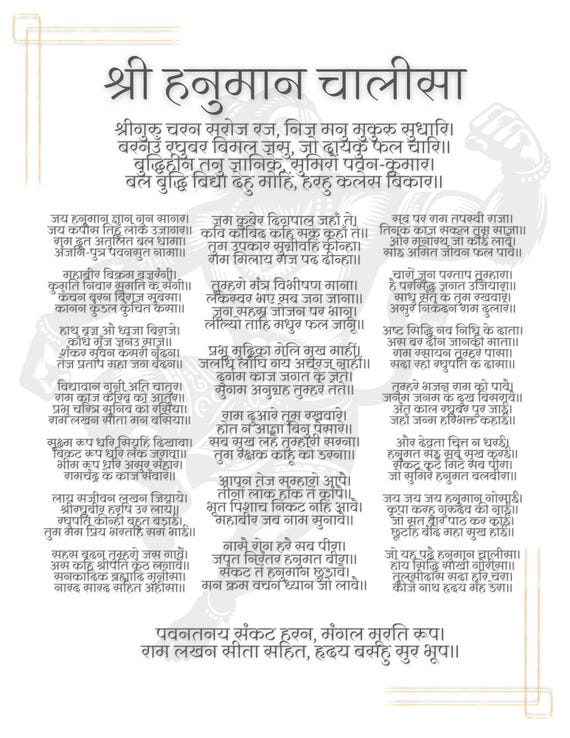 श्री हनुमान चालीसा
श्रीगुरु चरन सरोज रज, निज मनु मुकुरु सुधारि।
बरनउँ रघुबर बिमल जसु, जो दायकु फल चारि।।
बुद्धिहीन तनु जानिके, सुमिरौं पवन-कुमार।
बल बुद्धि विद्या देहु मोहिं, हरहु कलेस विकार।।
जय हनुमान ज्ञान गुन सागर।
जय कपीस तिहुं लोक उजागर।।
राम दूत अतुलित बल धामा।
अंजनि-पुत्र पवनसुत नामा।।
महाबीर बिक्रम बजरंगी।
कुमति निवार सुमति के संगी।।
कंचन बरन बिराज सुबेसा।
कानन कुंडल कुंचित केसा।।
हाथ बज्र औ ध्वजा बिराजे।
कांधे मूंज जनेउ साजे।।
शंकर सुवन केसरी नंदन।
तेज प्रताप महा जग बंदन।।
विद्यावान गुनी अति चातुर।
राम काज करिबे को आतुर।।
प्रभु चरित्र सुनिबे को रसिया।
राम लखन सीता मन बसिया।।
सूक्ष्म रूप धरि सियहिं दिखावा।
बिकट रूप धरि लंक जरावा।।
भीम रूप धरि असुर संहारे।
रामचंद्र के काज संवारे।।
लाय सजीवन लखन जियाये।
श्रीरघुबीर हरषि उर लाये।।
रघुपति कीन्ही बहुत बड़ाई।
तुम मम प्रिय भरतहि सम भाई।।
सहस बदन तुम्हरो जस गावें।
अस कहि श्रीपति कंठ लगावें।।
सनकादिक ब्रह्मादि मुनीसा।
नारद सारद सहित अहीसा।।
जम कुबेर दिगपाल जहाँ ते।
कवि कोबिद कहि सके कहाँ ते।।
तुम उपकार सुग्रीवहिं कीन्हा।
राम मिलाय राज पद दीन्हा।।
तुम्हरो मंत्र विभीषण माना।
लंकेस्वर भए सब जग जाना।।
जुग सहस्र जोजन पर भानू।
लील्यो ताहि मधुर फल जानू।।
प्रभु मुद्रिका मेलि मुख माहीं।
जलधि लांघि गये अचरज नाहीं।।
दुर्गम काज जगत के जेते।
सुगम अनुग्रह तुम्हरे तेते।।
राम दुआरे तुम रखवारे।
होत न आज्ञा बिनु पैसारे।।
सब सुख लहै तुम्हारी सरना।
तुम रक्षक काहू को डरना।।
आपन तेज सम्हारो आपै।
तीनों लोक हांक तें काँपै।।
भूत पिशाच निकट नहिं आवै।
महाबीर जब नाम सुनावै।।
नासै रोग हरै सब पीरा।
जपत निरंतर हनुमत बीरा।।
संकट तें हनुमान छुड़ावै।
मन क्रम बचन ध्यान जो लावै।।
सब पर राम तपस्वी राजा।
तिनके काज सकल तुम साजा।।
और मनोरथ जो कोई लावै।
सोई अमित जीवन फल पावै।।
चारों जुग परताप तुम्हारा।
है परसिद्ध जगत उजियारा।।
साधु संत के तुम रखवारे।
असुर निकंदन राम दुलारे।।
अष्ट सिद्धि नव निधि के दाता।
अस बर दीन जानकी माता।।
राम रसायन तुम्हरे पासा।
सदा रहो रघुपति के दासा।।
तुम्हरे भजन राम को पावै।
जनम जनम के दुख बिसरावै।।
अंत काल रघुबर पुर जाई।
जहाँ जन्म हरिभक्त कहाई।।
और देवता चित्त न धरई।
हनुमत सेइ सर्ब सुख करई।।
संकट कटै मिटै सब पीरा।
जो सुमिरै हनुमत बलबीरा।।
जय जय जय हनुमान गोसाईं।
कृपा करहु गुरुदेव की नाईं।।
जो सत बार पाठ कर कोई।
छूटहि बंदि महा सुख होई।।
जो यह पढ़ै हनुमान चालीसा।
होय सिद्धि साखी गौरीसा।।
तुलसीदास सदा हरि चेरा।
कीजै नाथ हृदय मँह डेरा।।
पवनतनय संकट हरन, मंगल मूरति रूप।
राम लखन सीता सहित, हृदय बसहु सुर भूप।।